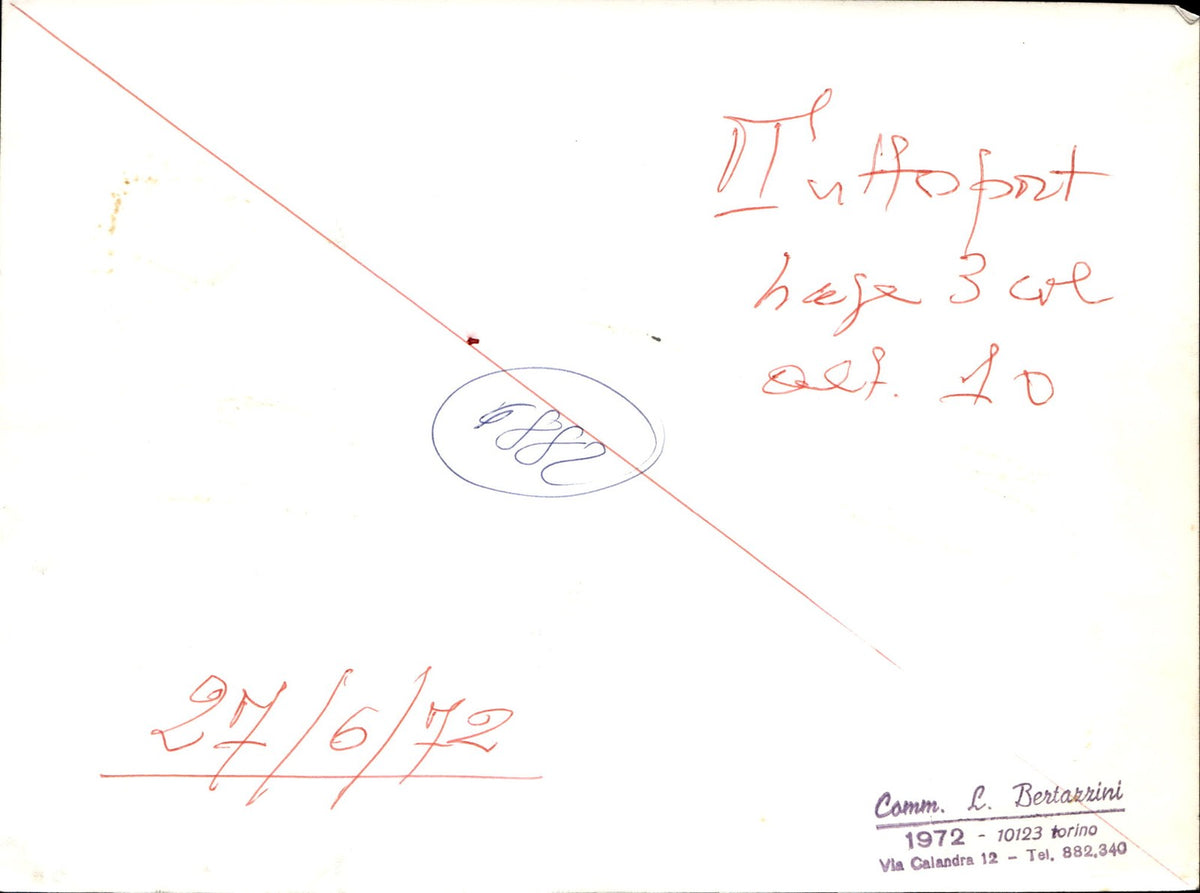 Tuttosport
base 3 col
alt. 10
6882
27/6/72
Comm. L. Bertazzini
1972 - 10123 torino
Via Calandra 12 - Tel. 882,340